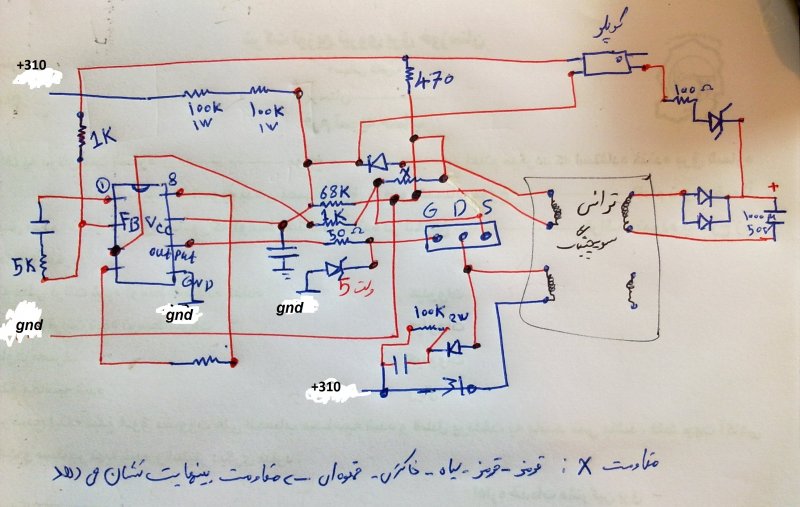 کوپلر
+310
470
100Ω
100K
1W
100K
1W
1K
X
ترانس
سوییچینگ
+
1000M
50V
1
8
68K
FB
VCC
1K
G D S
50Ω
output
5K
GND
5 ولت
gnd
gnd
gnd
100K
2W
+310
مقاومت X : قرمز - قرمز - سیاه - خاکستری - قهوه‌ای -- مقاومت بینهایت نشان می دهد